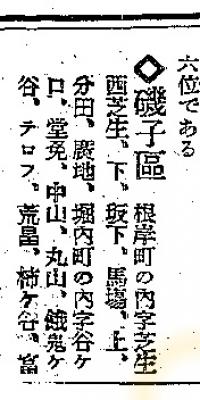 六位である
◇磯子區 根岸町の內字芝生
西芝生、下、坂下、馬場、上、
分田、廣地、堀內町の內字谷ケ
口、堂免、中山、丸山、餓鬼ケ
谷、テロフ、荒畠、柿ケ谷、富